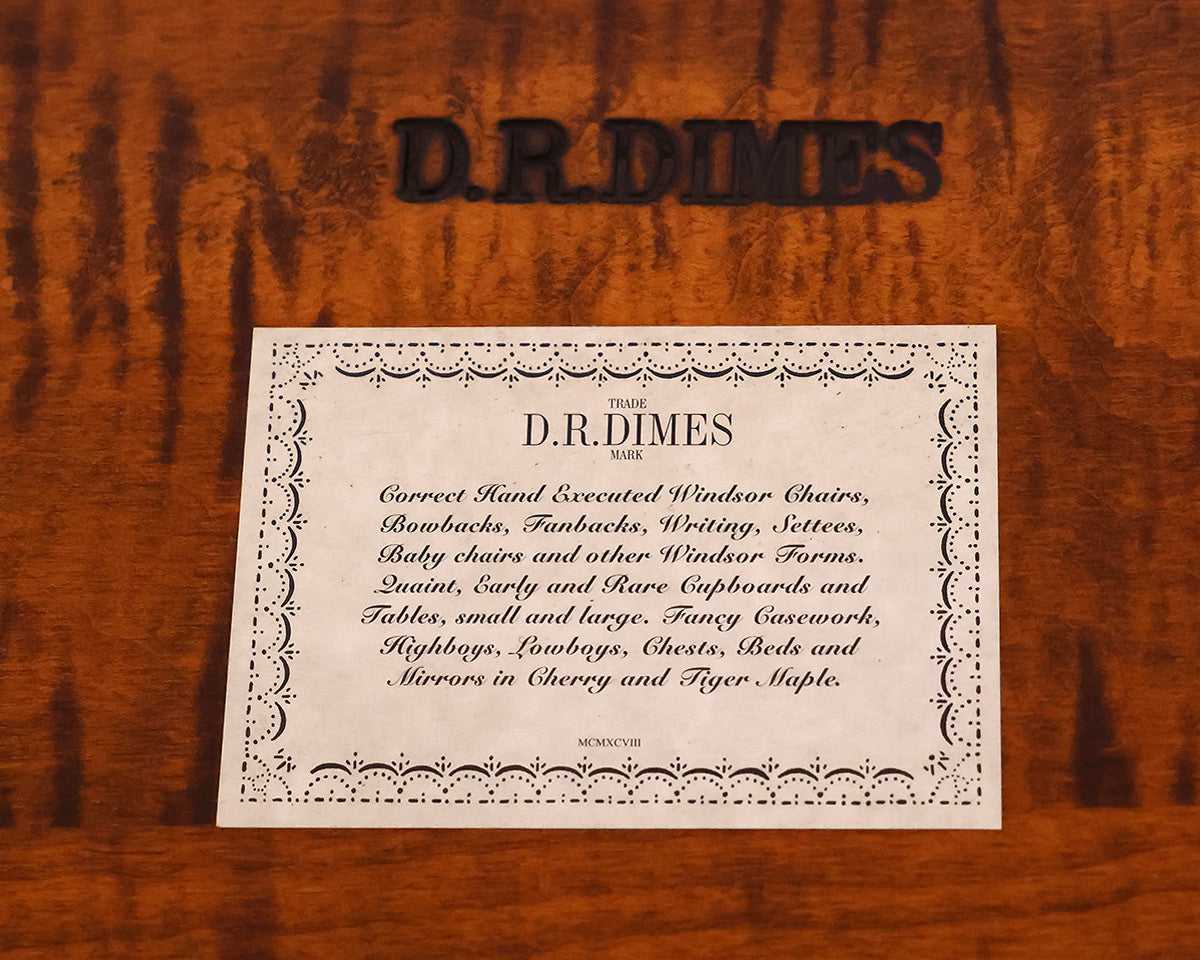 D.R.DIMES
TRADE
D.R.DIMES
MARK
Correct Hand Executed Windsor Chairs,
Bowbacks, Fanbacks, Writing, Settees,
Baby chairs and other Windsor Forms.
Quaint, Early and Rare Cupboards and
Tables, small and large. Fancy Casework,
Highboys, Lowboys, Chests, Beds and
Mirrors in Cherry and Tiger Maple.
MCMXCVIII